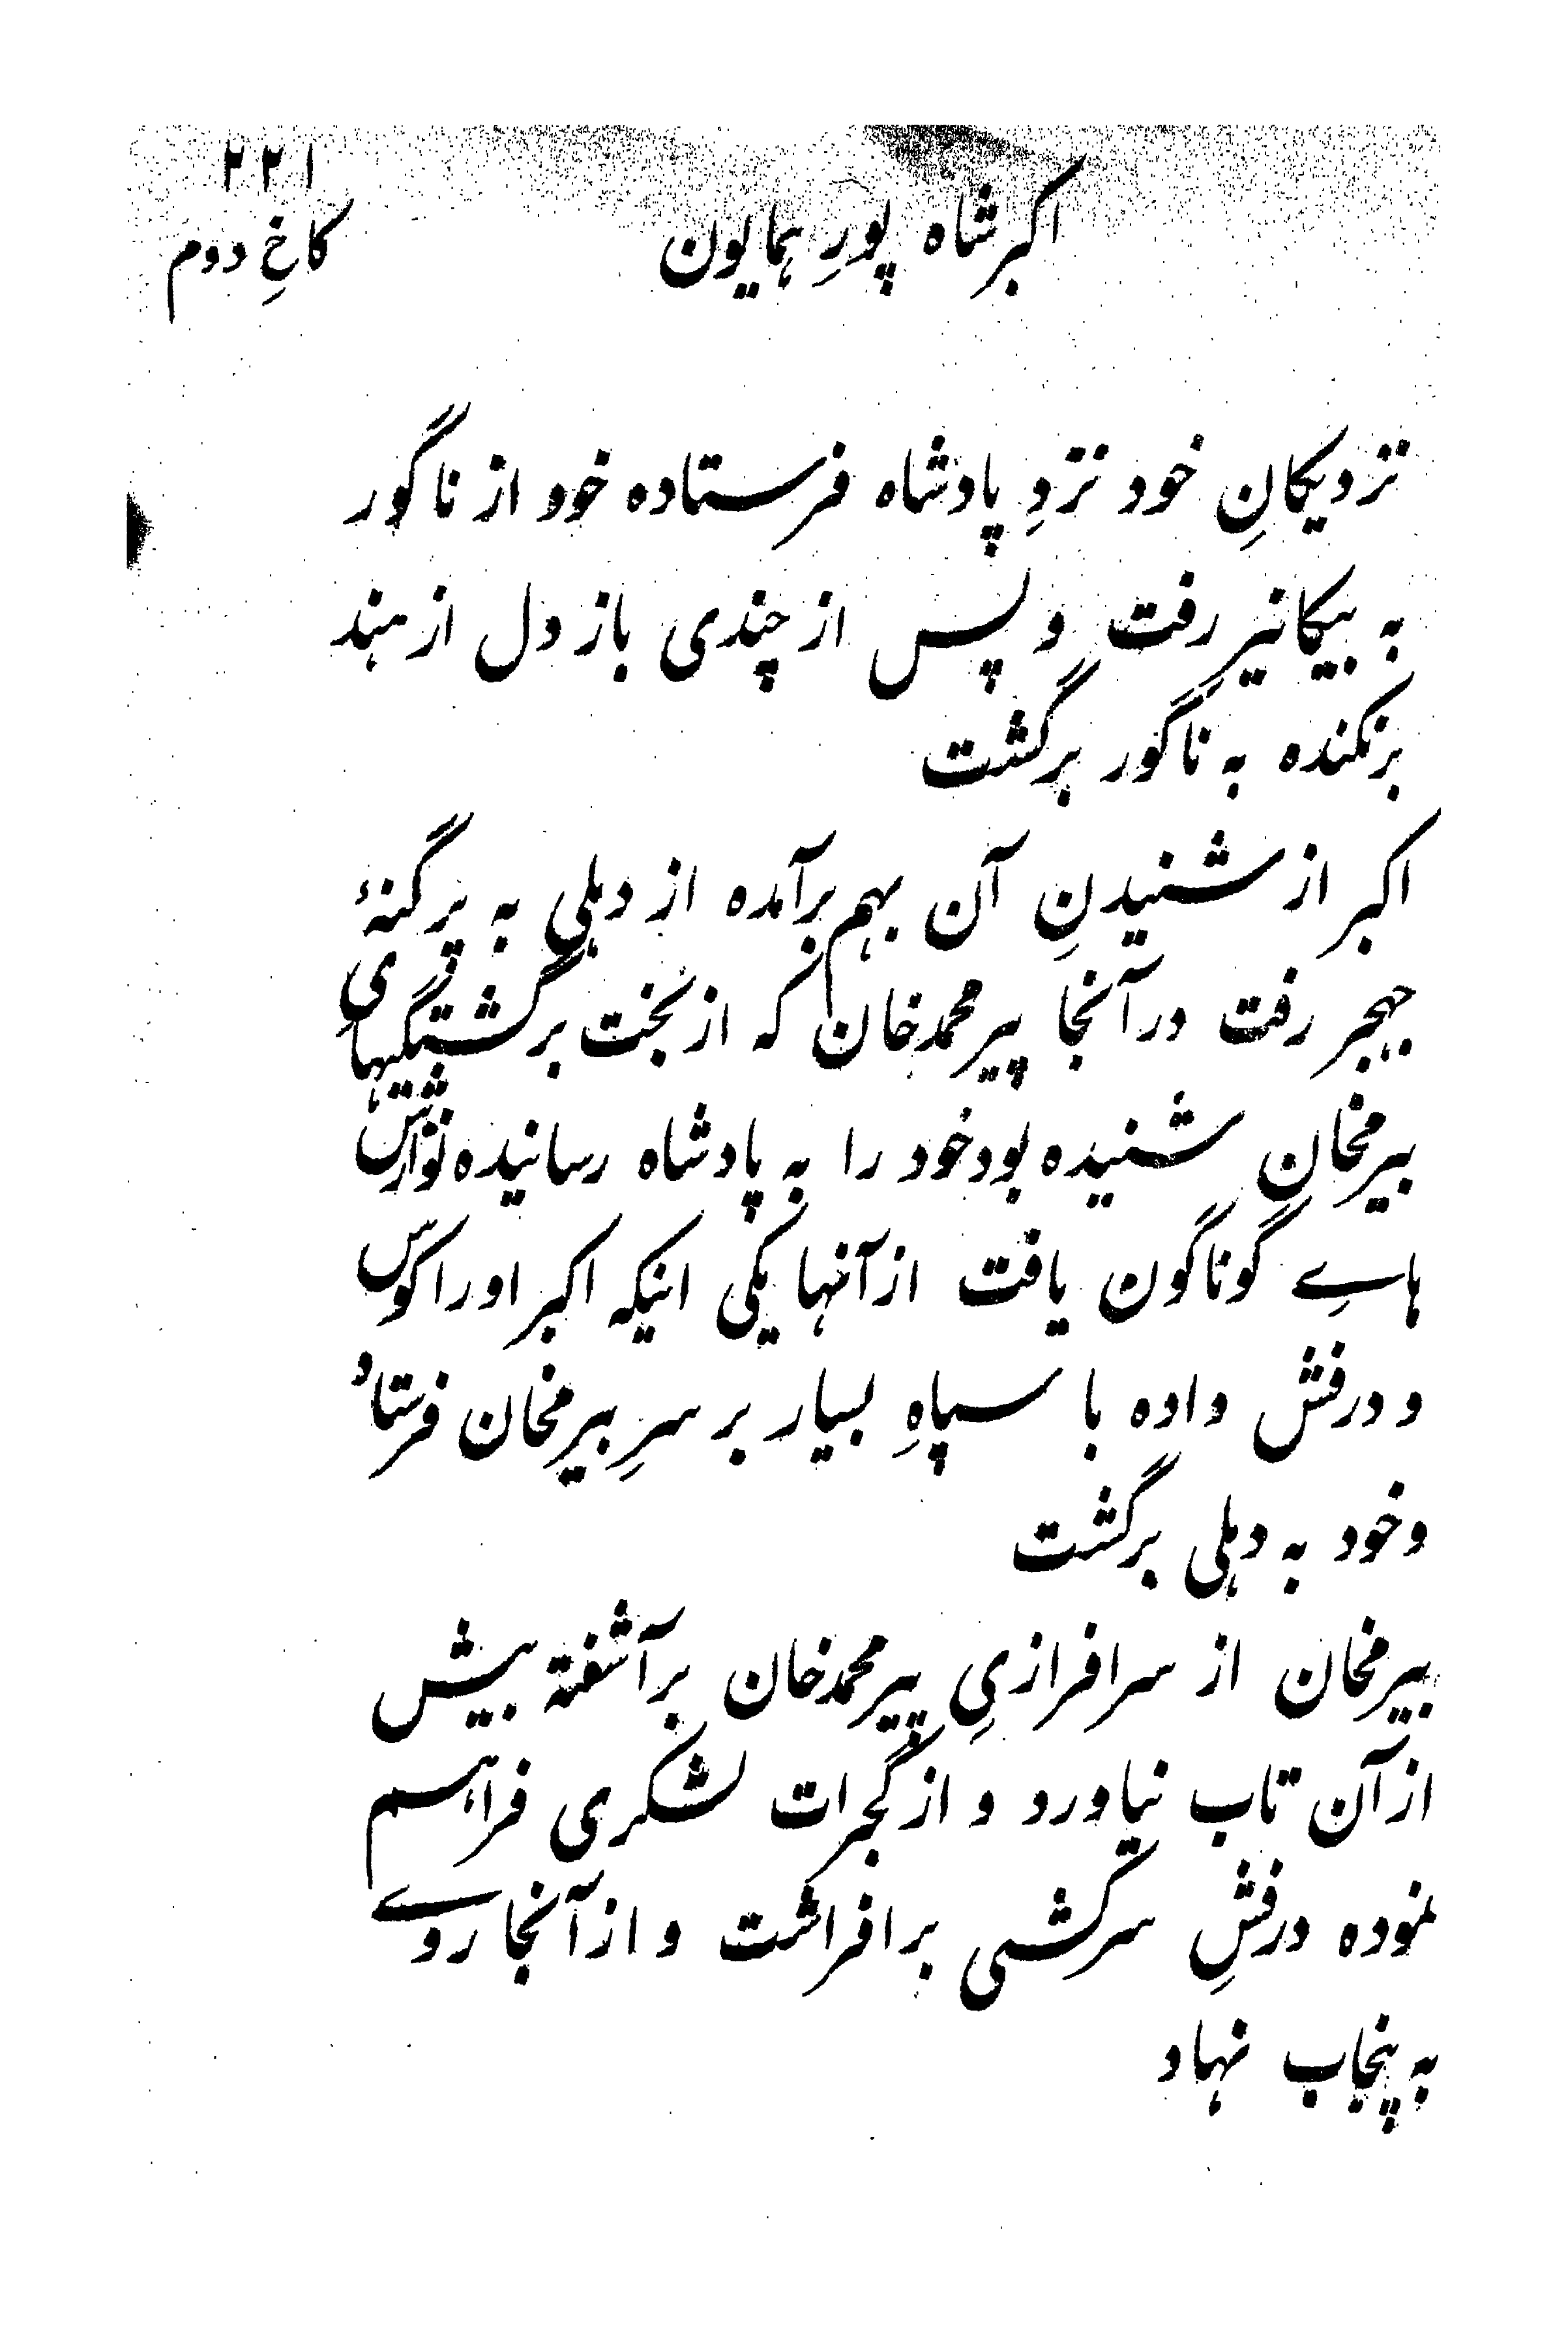 ۲۲۱
اکبرشاه پورِ همایون
کاخِ دوم
نزدیکانِ خود نزدِ پادشاه فرستاده خود از ناگور
به بیکانیر رفت و پس از چندی باز دل از هند
برنکنده به ناگور برگشت
اکبر از شنیدنِ آن بهم برآمده از دهلی به پرگنهٔ
جهجر رفت در آنجا پیر محمد خان که از بخت برگشتگیهایِ
بیرمخان شنیده بود خود را به پادشاه رسانیده نوازش
هاے گوناگون یافت از آنها یکی اینکه اکبر او را کوس
و درفش داده با سپاهِ بسیار بر سرِ بیرمخان فرستاد
و خود به دهلی برگشت
بیرمخان از سرافرازیِ پیر محمد خان برآشفته بیش
از آن تاب نیاورد و از گجرات لشکری فراهم
نموده درفشِ سرکشی برافراشت و از آنجا روے
به پنجاب نهاد